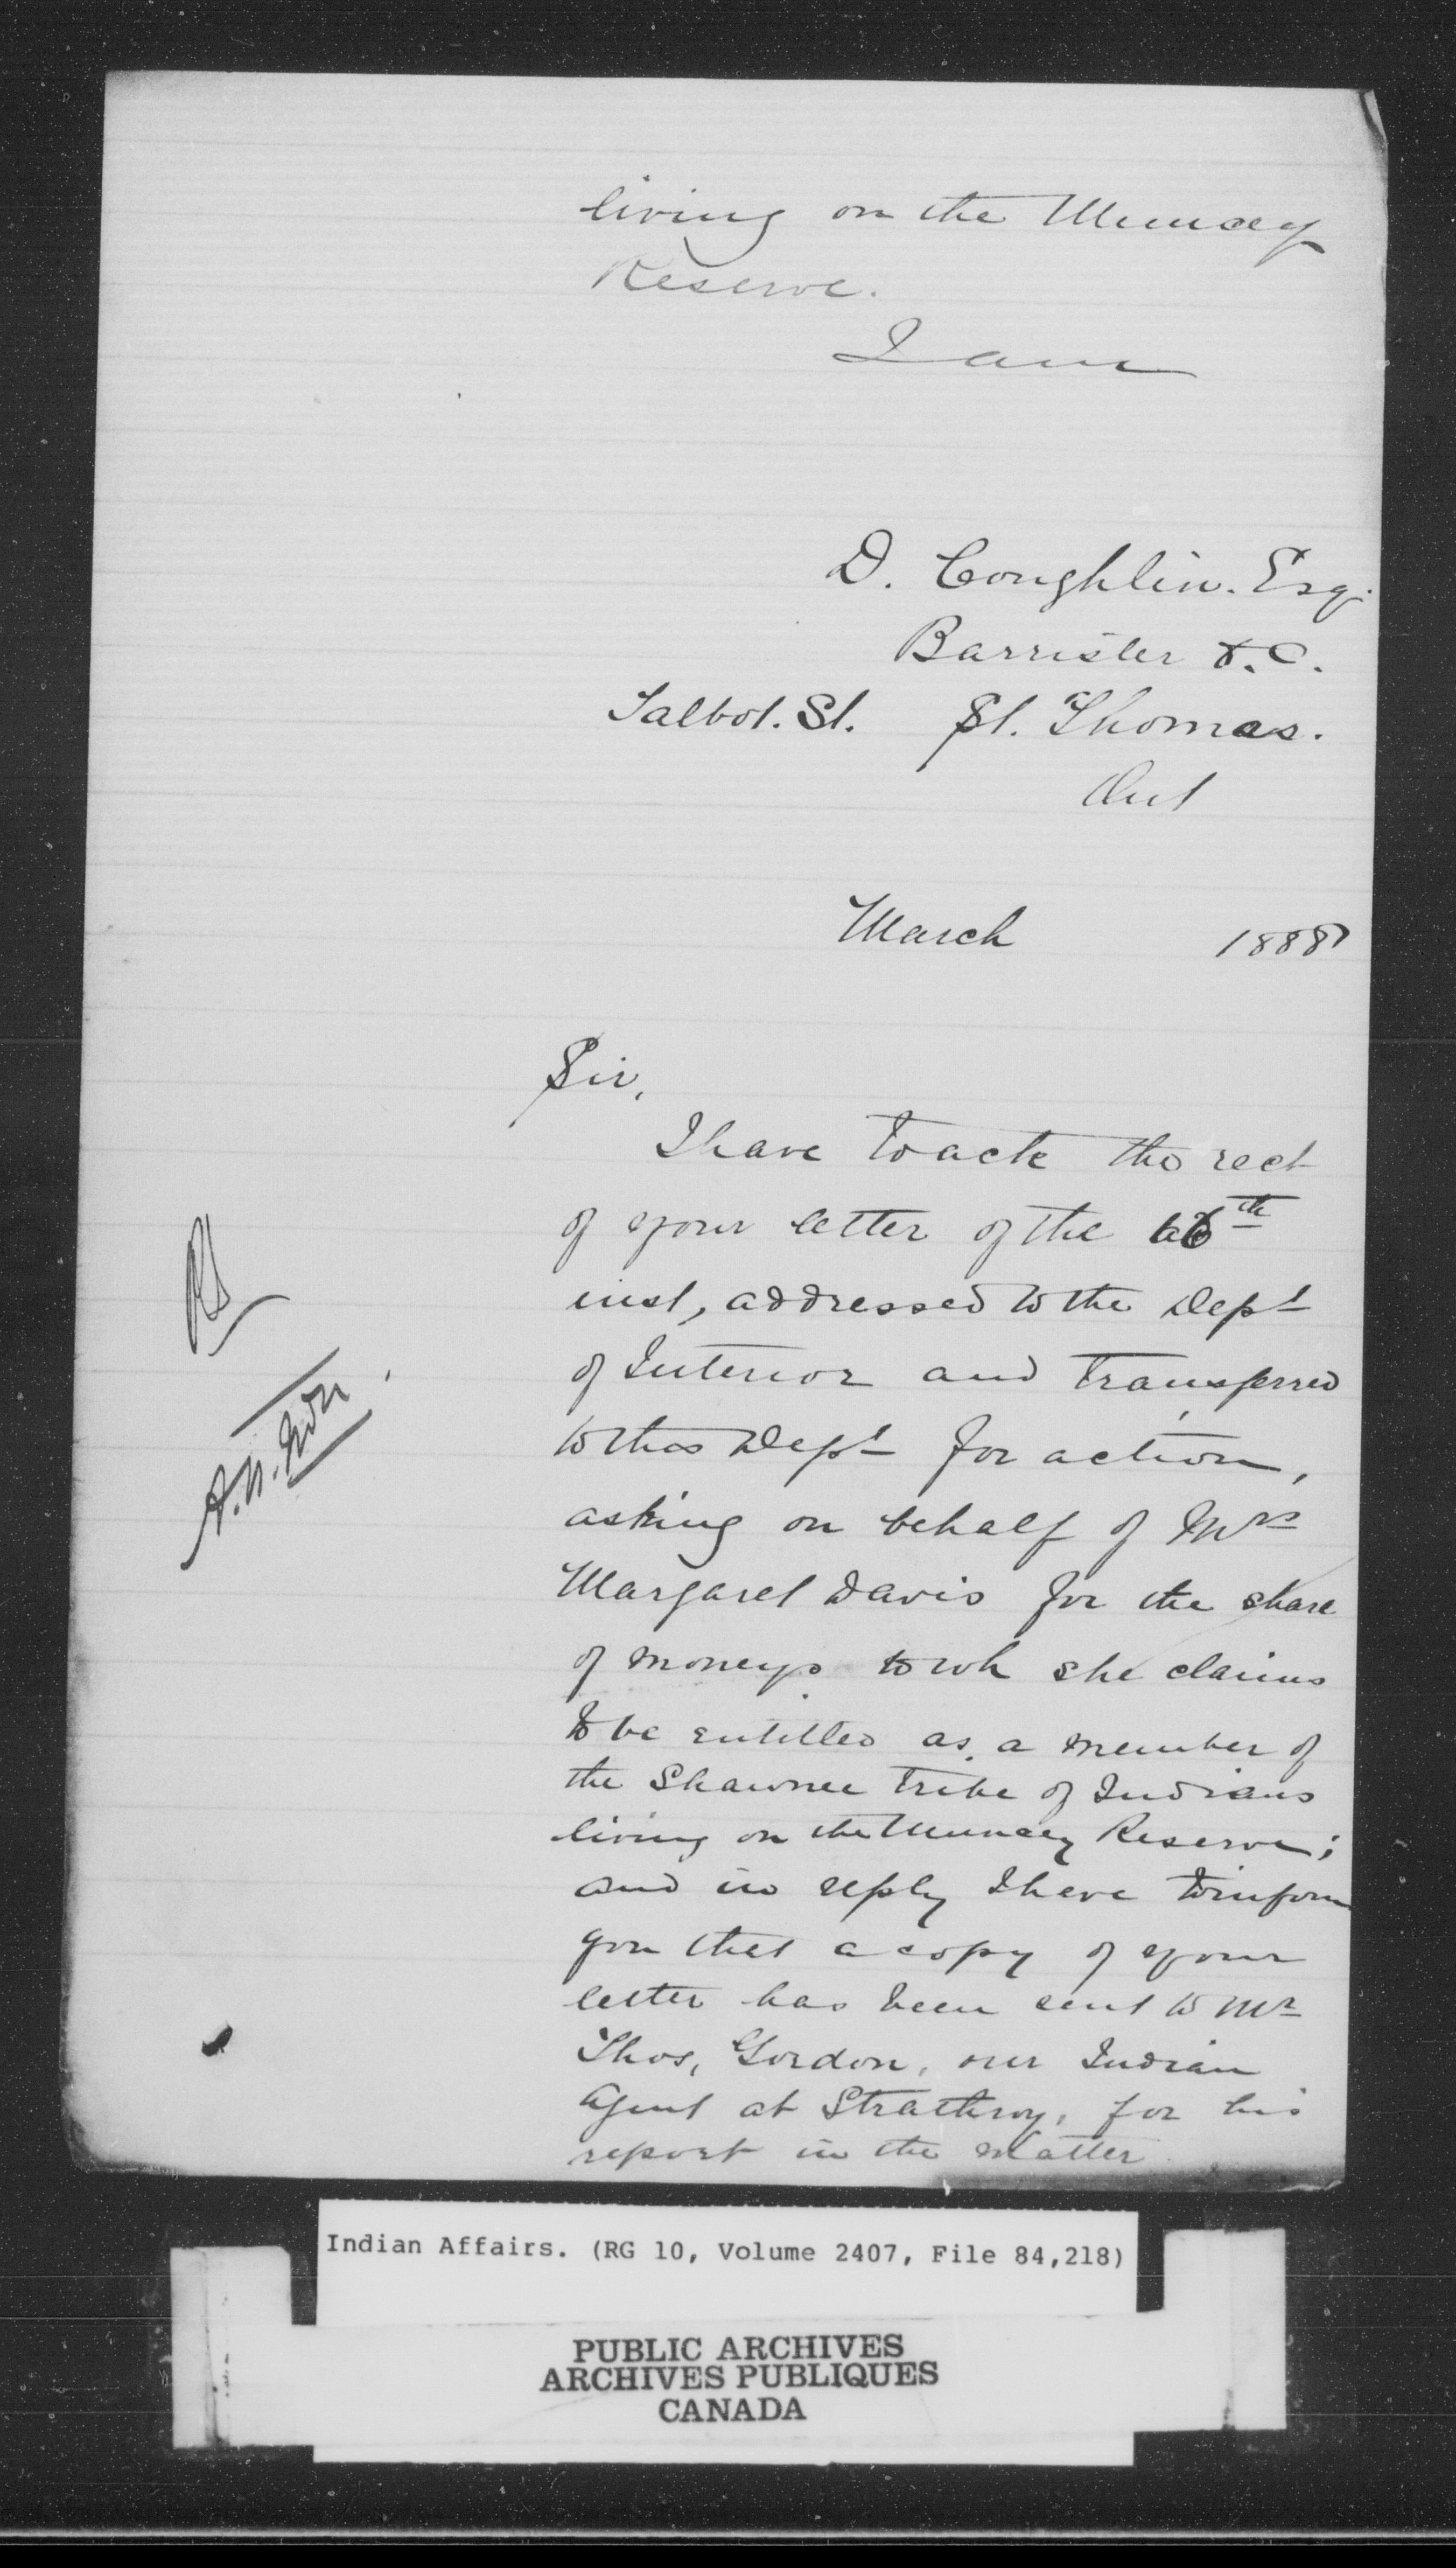 living on the Muncey
Reserve.
I am
D. Coughlin. Esq.
Barrister &.C.
Talbot. St. St. Thomas.
Ont
March 1888
Sir,
I have to ack the rect
of your letter of the
inst, addressed to the Dept
of Interior and transferred
to this Dept for action,
asking on behalf of Mrs
Margaret Davis for the share
of moneys to wh she claims
to be entitled as a member of
the Shawnee tribe of Indians
living on the Muncey Reserve;
and in reply I have to inform
you that a copy of your
letter has been sent to Mr
Thos, Gordon, our Indian
Agent at Strathroy, for his
report in the matter.
Indian Affairs. (RG 10, Volume 2407, File 84,218)
PUBLIC ARCHIVES
ARCHIVES PUBLIQUES
CANADA